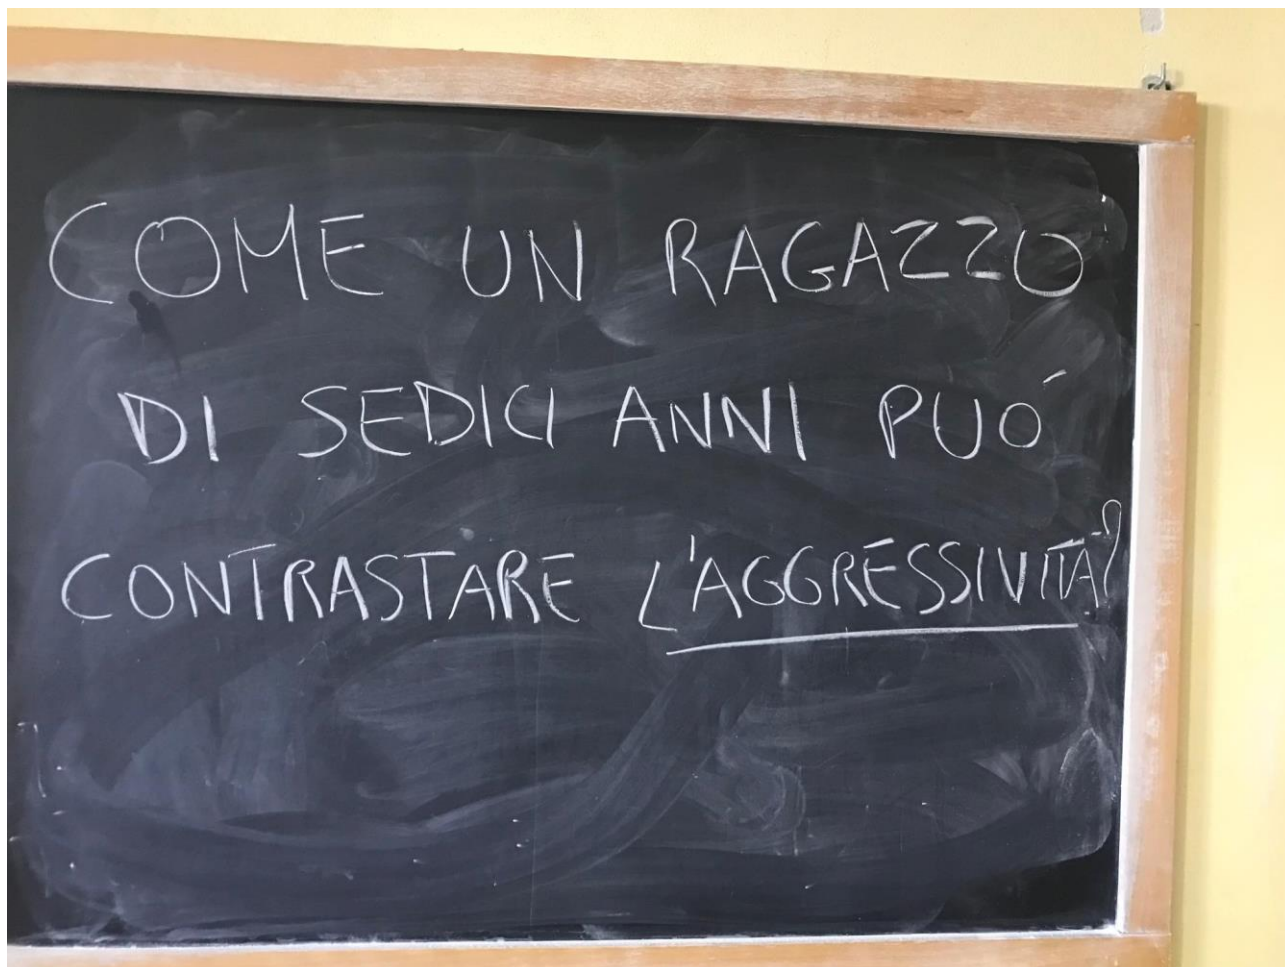 COME UN RAGAZZO
DI SEDICI ANNI PUÓ
CONTRASTARE L'AGGRESSIVITÀ?